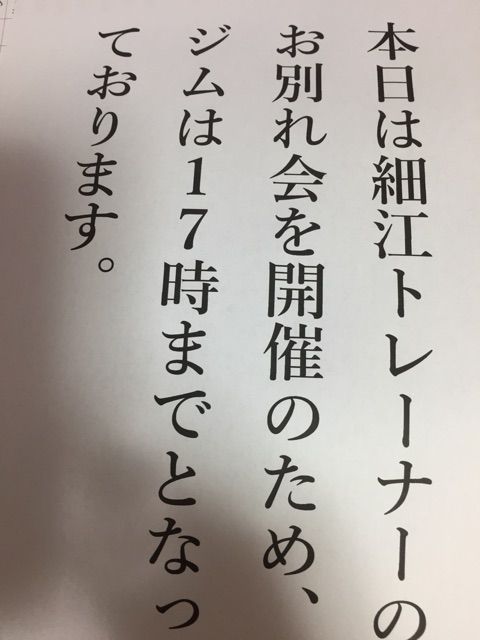 本日は細江トレーナーの
お別れ会を開催のため、
ジムは17時までとなっ
ております。